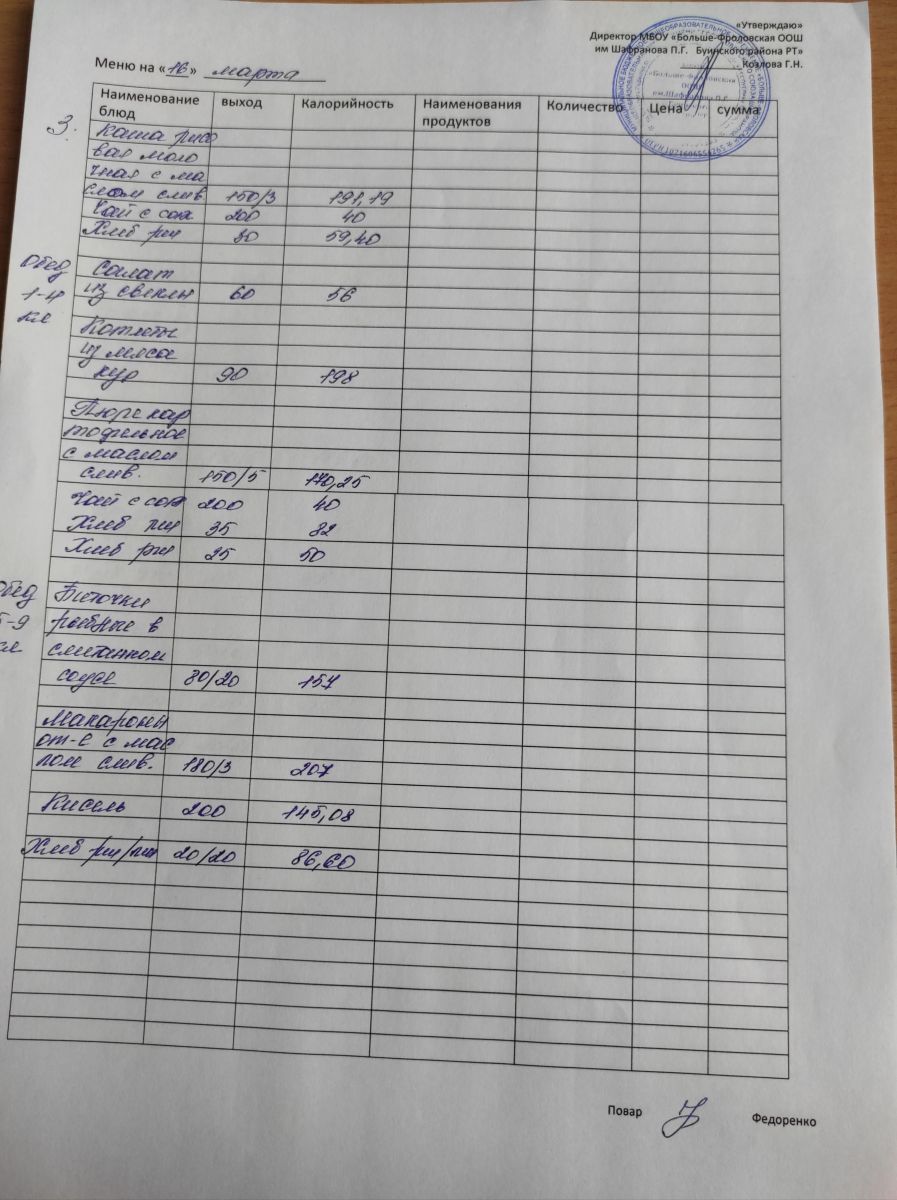 «Утверждаю»
Директор МБОУ «Больше-Фроловская ООШ
им Шафранова П.Г. Буинского района РТ»
Козлова Г.Н.
Меню на «16» марта
Наименование блюд выход Калорийность Наименования продуктов Количество Цена сумма
З.
Каша рисо
вая моло
чная с ма
слом слив 150/3 191,19
Чай с сах 200 40
Хлеб рж 30 59,40
Обед
1-4
кл
Салат
из свеклы 60 56
Котлеты
из мяса
кур 90 198
Пюре кар
тофельное
с маслом
слив. 150/5 170,25
Чай с сах 200 40
Хлеб пш 35 82
Хлеб рж 25 50
Обед
5-9
кл
Биточки
рыбные в
сметанном
соусе 80/20 157
Макароны
от-е с мас
лом слив. 180/3 207
Кисель 200 145,08
Хлеб рж/пш 20/20 86,60
Повар Федоренко